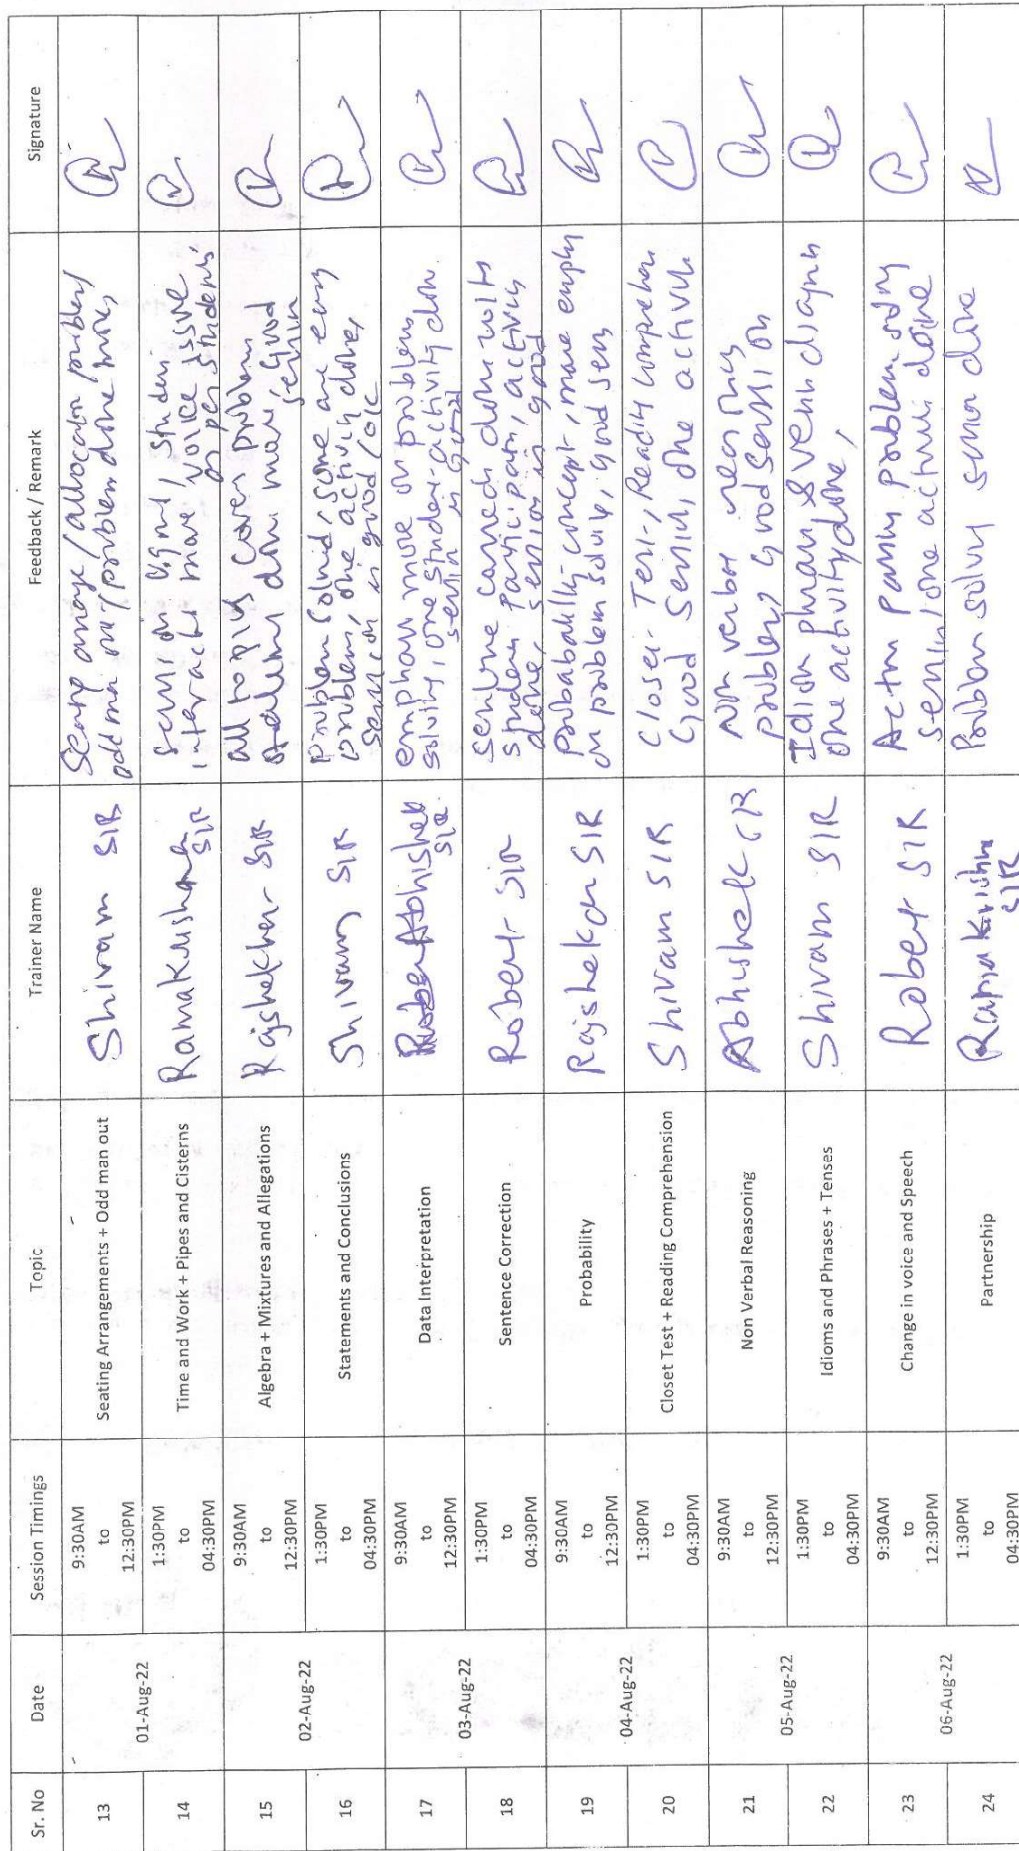 Sr. No Date Session Timings Topic Trainer Name Feedback / Remark Signature
13 01-Aug-22 9:30AM to 12:30PM Seating Arrangements + Odd man out Shivam SIR
arrange / allocation problem /
odd man out / problem done more,
14 1:30PM to 04:30PM Time and Work + Pipes and Cisterns Ramakrishna SIR
on student
interactn more voice issue
as per students'
15 02-Aug-22 9:30AM to 12:30PM Algebra + Mixtures and Allegations Rajshekhar SIR
all topics cover problem
more, Good
16 1:30PM to 04:30PM Statements and Conclusions Shivam SIR
problem Solved, some are easy
problem, one activity done,
session is good / ok
17 03-Aug-22 9:30AM to 12:30PM Data Interpretation Abhishek SIR
more on problem
solving, one student activity done
is good
18 1:30PM to 04:30PM Sentence Correction Robert SIR
done with
student activity
done, session is good
19 04-Aug-22 9:30AM to 12:30PM Probability Rajshekar SIR
probability concept, more
on problem solving, good
20 1:30PM to 04:30PM Closet Test + Reading Comprehension Shivam SIR
Closet Test, Reading
Good one activity
21 05-Aug-22 9:30AM to 12:30PM Non Verbal Reasoning Abhishek SIR
Non verbal reasoning
problem good Session
22 1:30PM to 04:30PM Idioms and Phrases + Tenses Shivam SIR
Idiom phrases & venn diagram
one activity done,
23 06-Aug-22 9:30AM to 12:30PM Change in voice and Speech Robert SIR
problem
/ one done
24 1:30PM to 04:30PM Partnership Ramakrishna SIR
Problem solving done